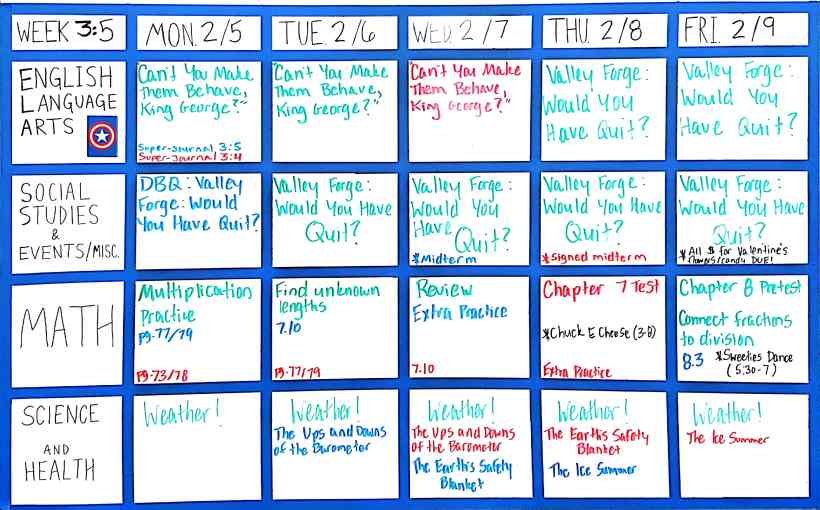 WEEK 3:5
MON. 2/5
TUE. 2/6
WED. 2/7
THU. 2/8
FRI. 2/9
ENGLISH
LANGUAGE
ARTS
"Can't You Make
Them Behave,
King George?"
Super-Journal 3:5
Super-Journal 3:4
"Can't You Make
Them Behave,
King George?"
"Can't You Make
Them Behave,
King George?"
Valley Forge:
Would You
Have Quit?
Valley Forge:
Would You
Have Quit?
SOCIAL
STUDIES
&
EVENTS/MISC.
DBQ: Valley
Forge: Would
You Have Quit?
Valley Forge:
Would You Have
Quit?
Valley Forge:
Would You
Have Quit?
*Midterm
Valley Forge:
Would You Have
Quit?
*Signed midterm
Valley Forge:
Would You Have
Quit?
*All $ for Valentine's
flowers/candy DUE!
MATH
Multiplication
Practice
pg. 77/79
pg. 73/78
Find unknown
lengths
7.10
pg. 77/79
Review
Extra Practice
7.10
Chapter 7 Test
*Chuck E Cheese (3-8)
Extra Practice
Chapter 8 Pretest
Connect fractions
to division
8.3 *Sweeties Dance
(5:30-7)
SCIENCE
AND
HEALTH
Weather!
Weather!
The Ups and Downs
of the Barometer
Weather!
The Ups and Downs
of the Barometer
The Earth's Safety
Blanket
Weather!
The Earth's Safety
Blanket
The Ice Summer
Weather!
The Ice Summer